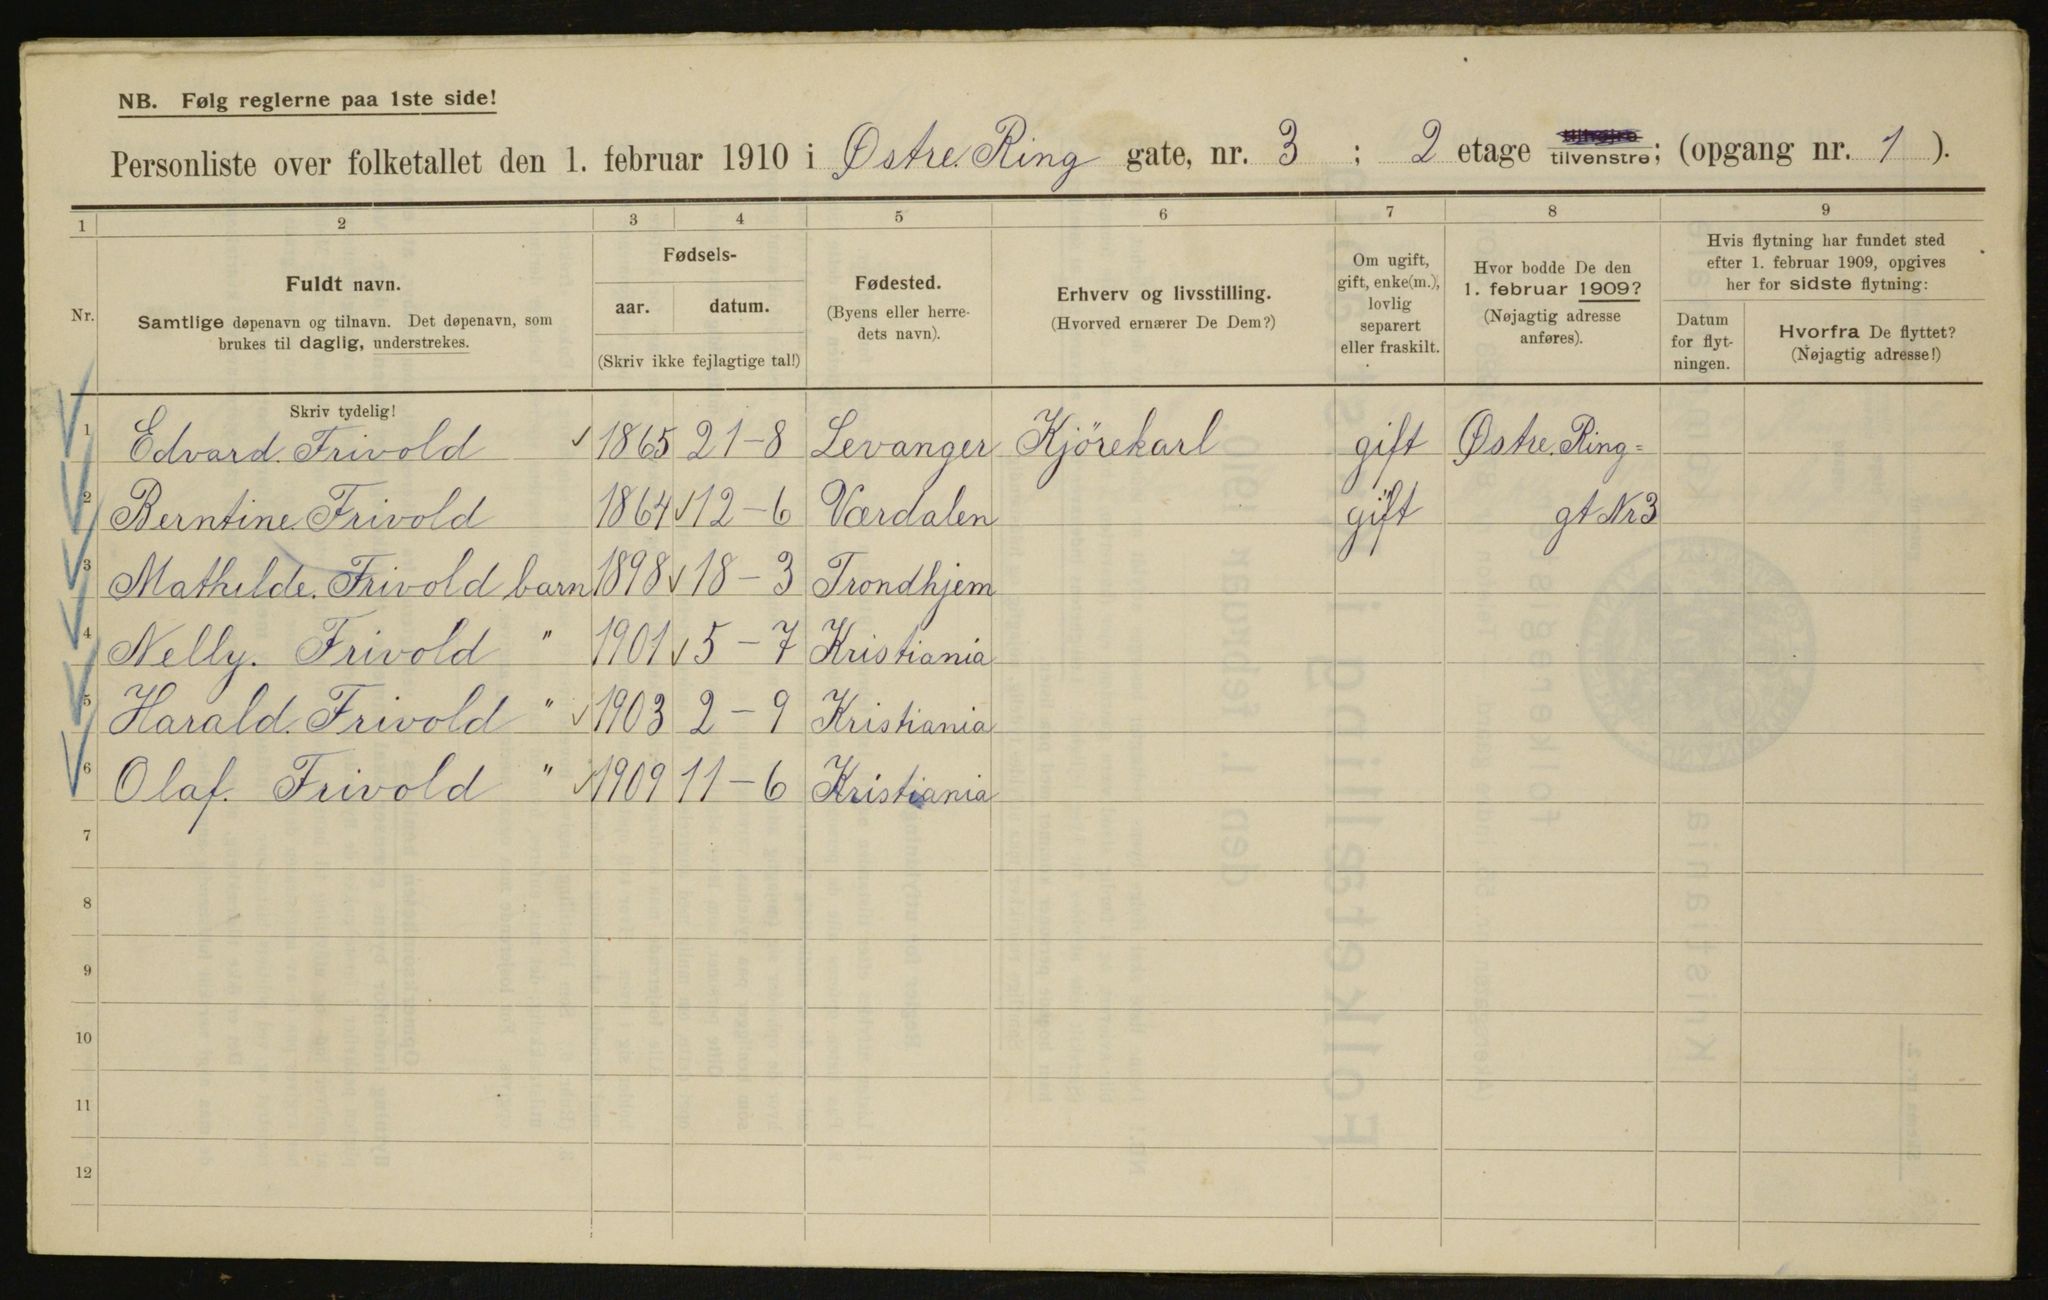 NB. Følg reglerne paa 1ste side!
Personliste over folketallet den 1. februar 1910 i Østre. Ring gate, nr. 3 ; 2 etage tilhøjre tilvenstre; (opgang nr. 1 ).
1 2 3 4 5 6 7 8 9
Nr.
Fuldt navn.
Samtlige døpenavn og tilnavn. Det døpenavn, som
brukes til daglig, understrekes.
Fødsels-
aar. datum.
(Skriv ikke fejlagtige tal!)
Fødested.
(Byens eller herre-
dets navn).
Erhverv og livsstilling.
(Hvorved ernærer De Dem?)
Om ugift,
gift, enke(m.),
lovlig
separert
eller fraskilt.
Hvor bodde De den
1. februar 1909?
(Nøjagtig adresse
anføres).
Hvis flytning har fundet sted
efter 1. februar 1909, opgives
her for sidste flytning:
Datum
for flyt-
ningen.
Hvorfra De flyttet?
(Nøjagtig adresse!)
Skriv tydelig!
1 Edvard. Frivold 1865 21-8 Levanger Kjörekarl gift Østre. Ring=
2 Berntine Frivold 1864 12-6 Værdalen gift gt Nr 3
3 Mathilde. Frivold barn 1898 18-3 Trondhjem
4 Nelly. Frivold " 1901 5-7 Kristiania
5 Harald. Frivold " 1903 2-9 Kristiania
6 Olaf. Frivold " 1909 11-6 Kristiania
7
8
9
10
11
12